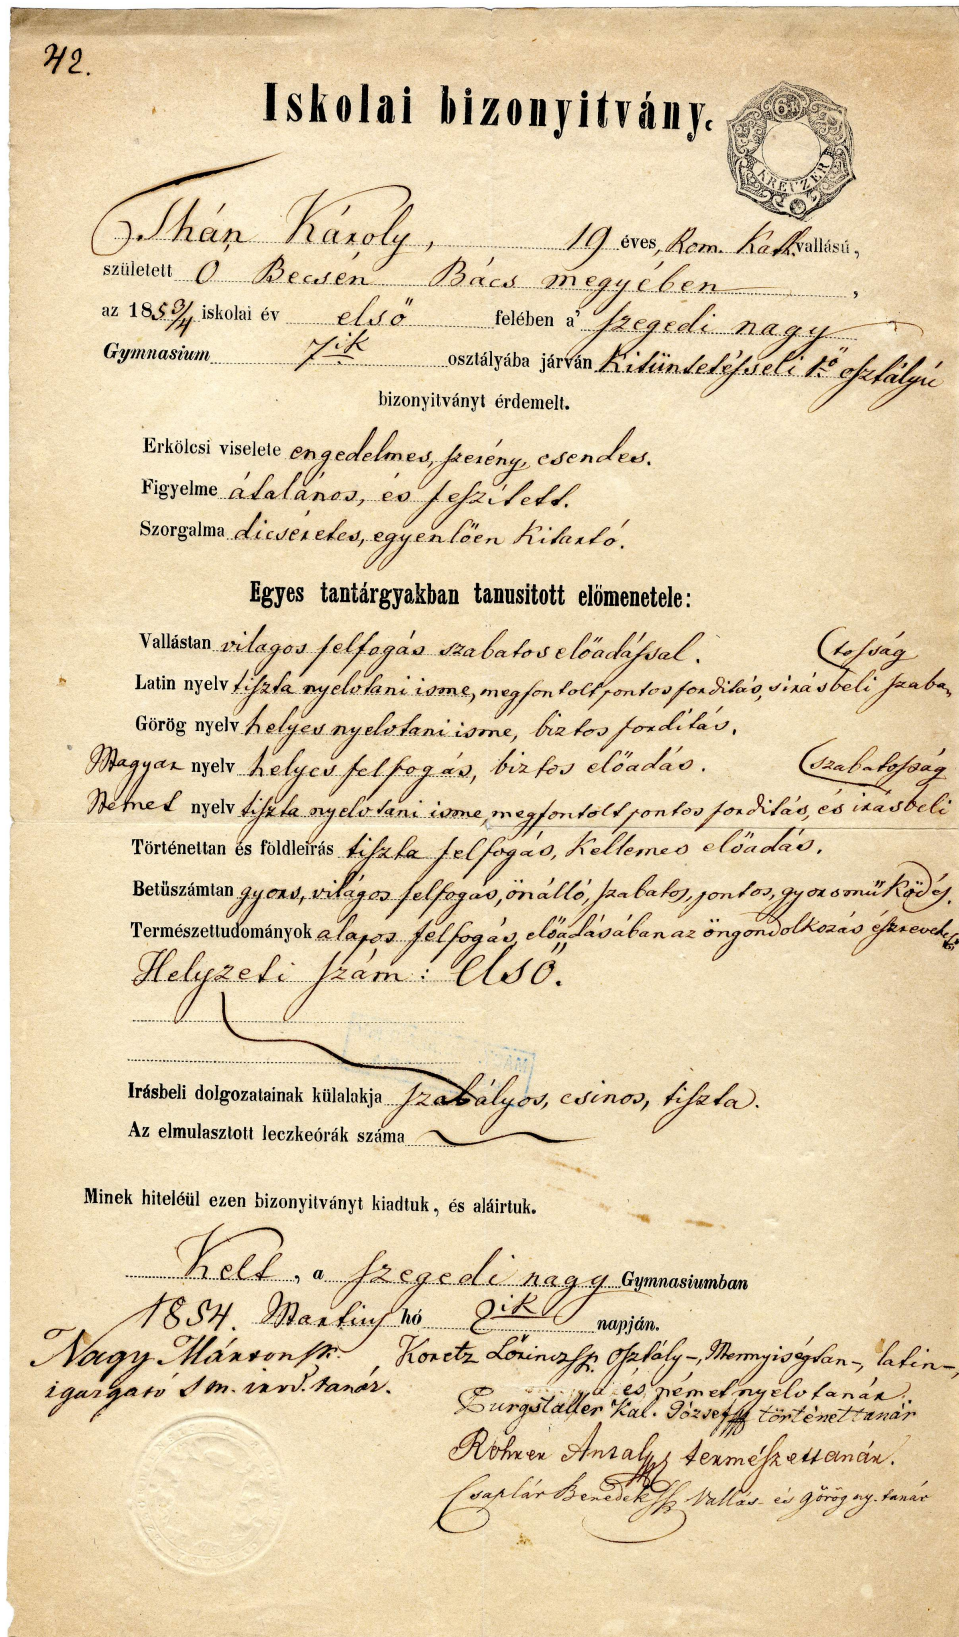 42.
Iskolai bizonyitvány.
6 K
KREUZER
Thán Károly, 19 éves, Rom. Kath. vallású,
született Ó Becsén Bács megyében,
az 1853/4 iskolai év első felében a' szegedi nagy
Gymnasium 7ik osztályába járván Kitüntetésseli 1ső osztályú
bizonyitványt érdemelt.
Erkölcsi viselete engedelmes, szerény, csendes.
Figyelme átalános, és feszített.
Szorgalma dicséretes, egyenlően Kitartó.
Egyes tantárgyakban tanusitott előmenetele:
Vallástan vilagos felfogás szabatos előadással.
Latin nyelv tiszta nyelvtani isme, megfontolt pontos forditás, irásbeli szaba-
(tosság
Görög nyelv helyes nyelvtani isme, biztos fordítás.
Magyar nyelv helyes felfogás, biztos előadás.
Német nyelv tiszta nyelvtani isme, megfontolt pontos forditás, és irásbeli
(szabatosság
Történettan és földleirás tiszta felfogás, Kellemes előadás.
Betüszámtan gyors, világos felfogás, önálló, szabatos, pontos, gyors müKödés.
Természettudományok alapos felfogás, előadásában az öngondolkozás észrevehető
Helyzeti szám: első.
Irásbeli dolgozatainak külalakja szabályos, csinos, tiszta.
Az elmulasztott leczkeórák száma
Minek hiteléül ezen bizonyitványt kiadtuk, és aláirtuk.
Kelt, a szegedi nagy Gymnasiumban
1854. Martius hó 2ik napján.
Nagy Márton
igazgató s m. irod. tanár.
Koretz Lőrincz osztály-, Mennyiségtan-, latin-,
és német nyelv tanár.
Purgstaller Kal. József történet tanár
Rohrer Antal természettanár.
Csaplár Benedek Vallás- és görög ny. tanár